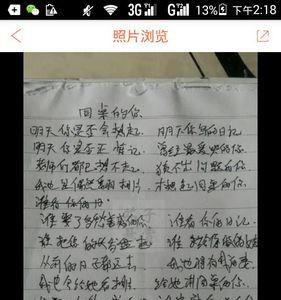 3G G 13% 下午2:18
照片浏览
同桌的你
明天你是否会想起 明天你写的日记
明天你是否还惦记 曾经最爱哭的你
老师们都已想不起 猜不出问题的你
我也是偶然翻相片 才想起同桌的你
谁看你的日
谁娶了多愁善感的你 谁看你的日记
谁把你的长发盘起 谁给你做的嫁衣
从前的日子都远去 我也将有我的妻
我也会给她看相片 给她讲同桌的你